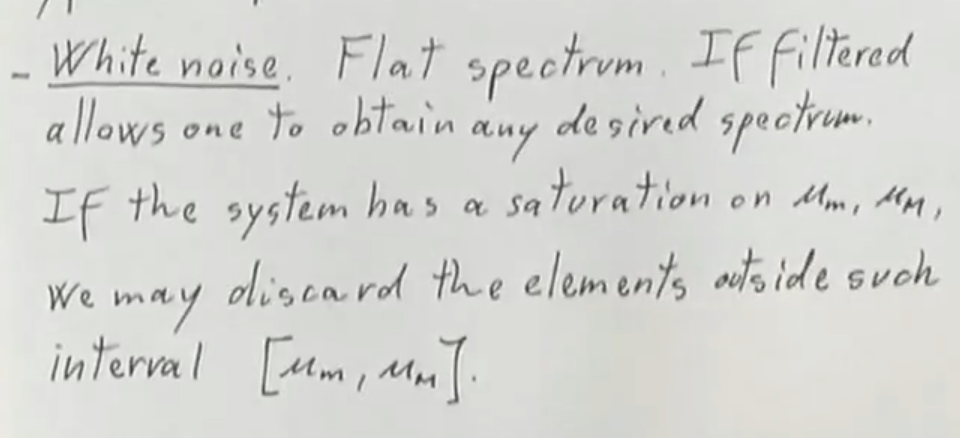 - White noise. Flat spectrum. If filtered
allows one to obtain any desired spectrum.
If the system has a saturation on um, uM,
we may discard the elements outside such
interval [um, uM].